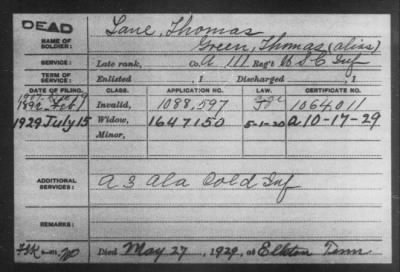 DEAD
Lane, Thomas
NAME OF SOLDIER:
Green, Thomas (alias)
SERVICE: Late rank, Co. A 111 Reg't U S C Inf
TERM OF SERVICE: Enlisted , 1 Discharged , 1
DATE OF FILING. CLASS. APPLICATION NO. LAW. CERTIFICATE NO.
1892 Feb Invalid, 1088,597 1064,011
1929 July 15 Widow, 1647150 5-1-20 a.10-17-29
Minor,
ADDITIONAL SERVICES: A 3 Ala Cold Inf
REMARKS:
Died May 27, 1929, at Elkton Tenn